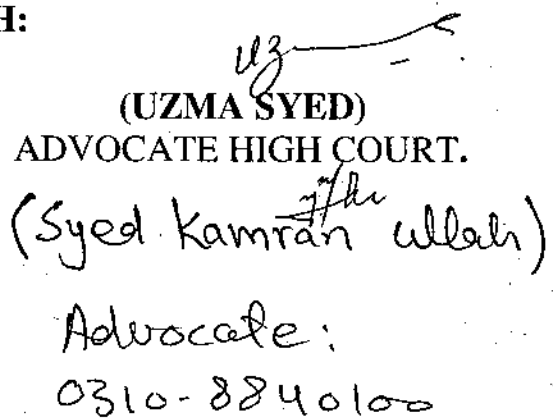 H:
(UZMA SYED)
ADVOCATE HIGH COURT.
(Syed Kamran ullah)
Advocate:
0310-8840100